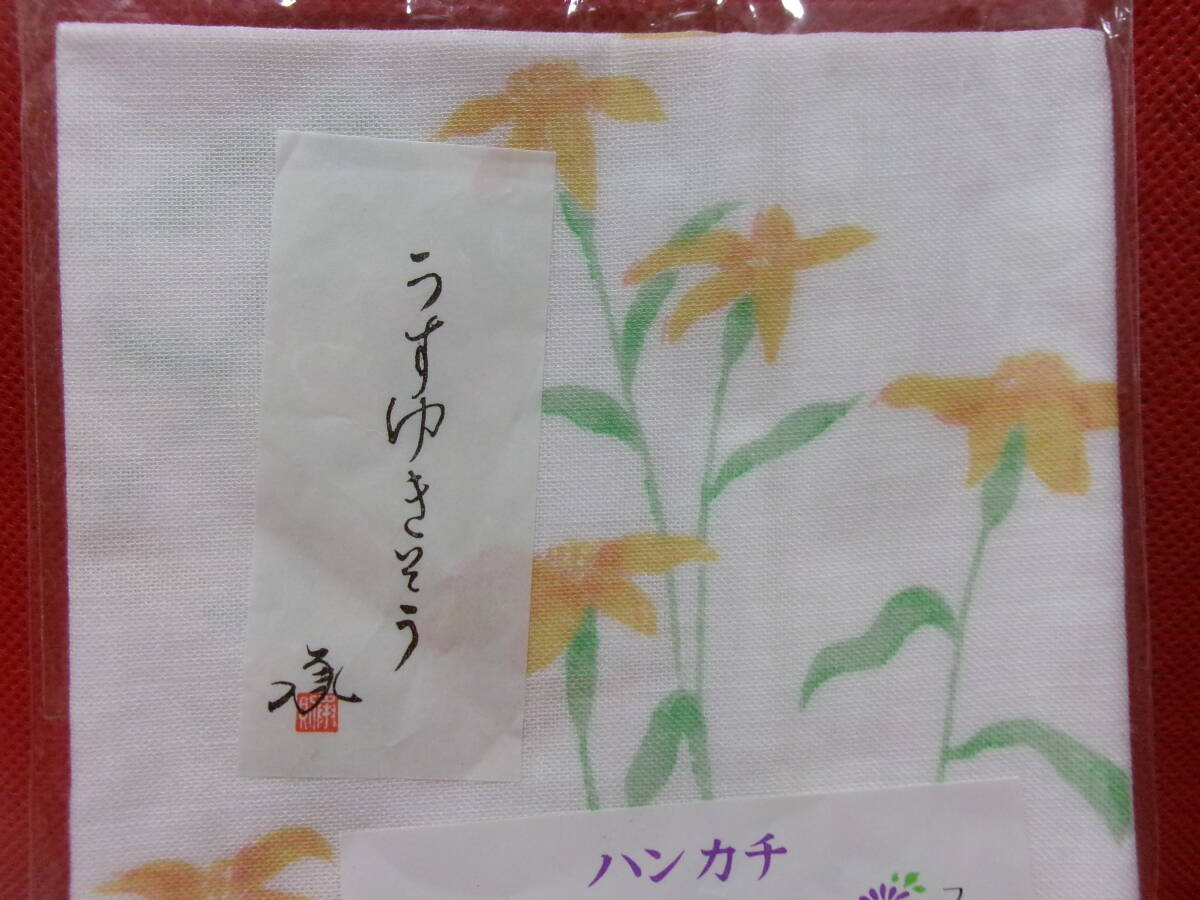 うすゆきそう
ハンカチ